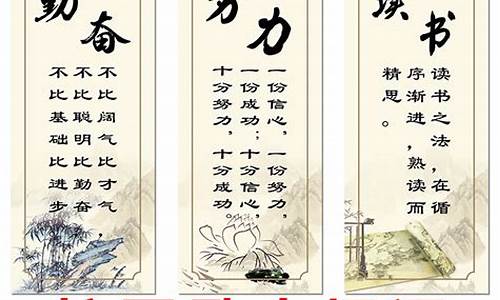 勤奋
不比阔气比才气，
不比聪明比勤奋
不比基础比进步
努力
一份信心，一份努力，
一份成功；十分信心，
十分努力，十分成功。
读书
读书之法，在循
序渐进，熟读而
精思。